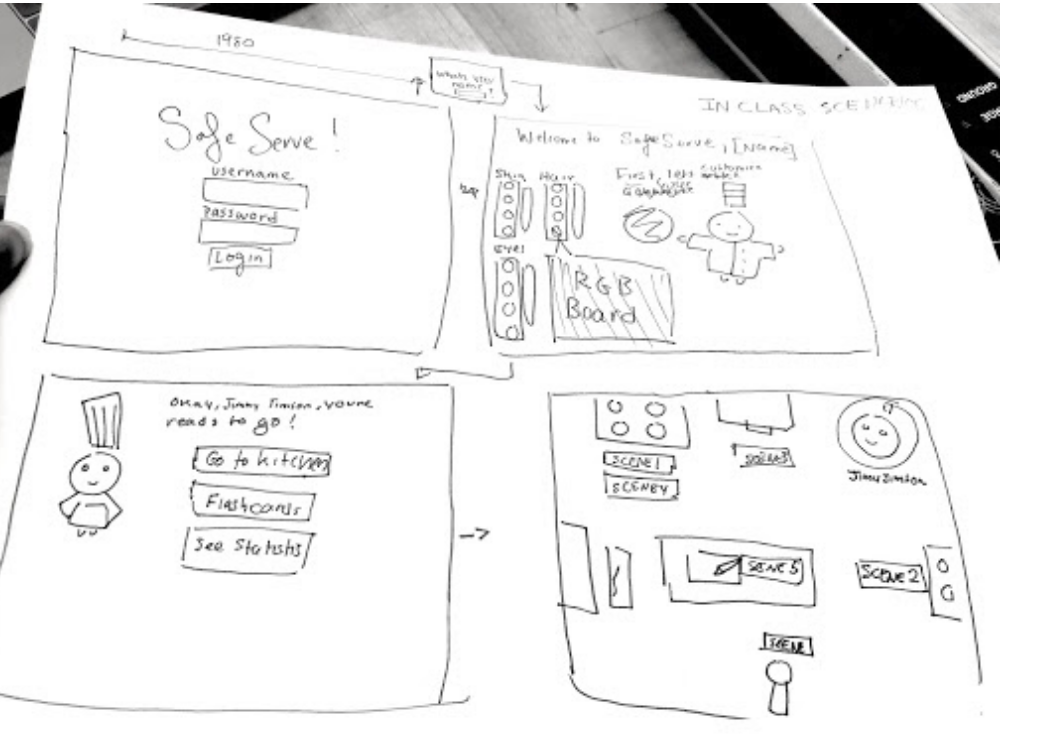 1980
whats your name?
IN CLASS
Safe Serve!
username
Password
Login
Welcome to SafeServe, [Name]
Skin
Hair
First, lets customize
Eyes
RGB
Board
Okay, Jimmy Timson, youre
ready to go!
Go to kitchen
Flashcards
See Statistics
SCENE1
SCENE4
SCENE3
SCENE5
SCENE2
SCENE